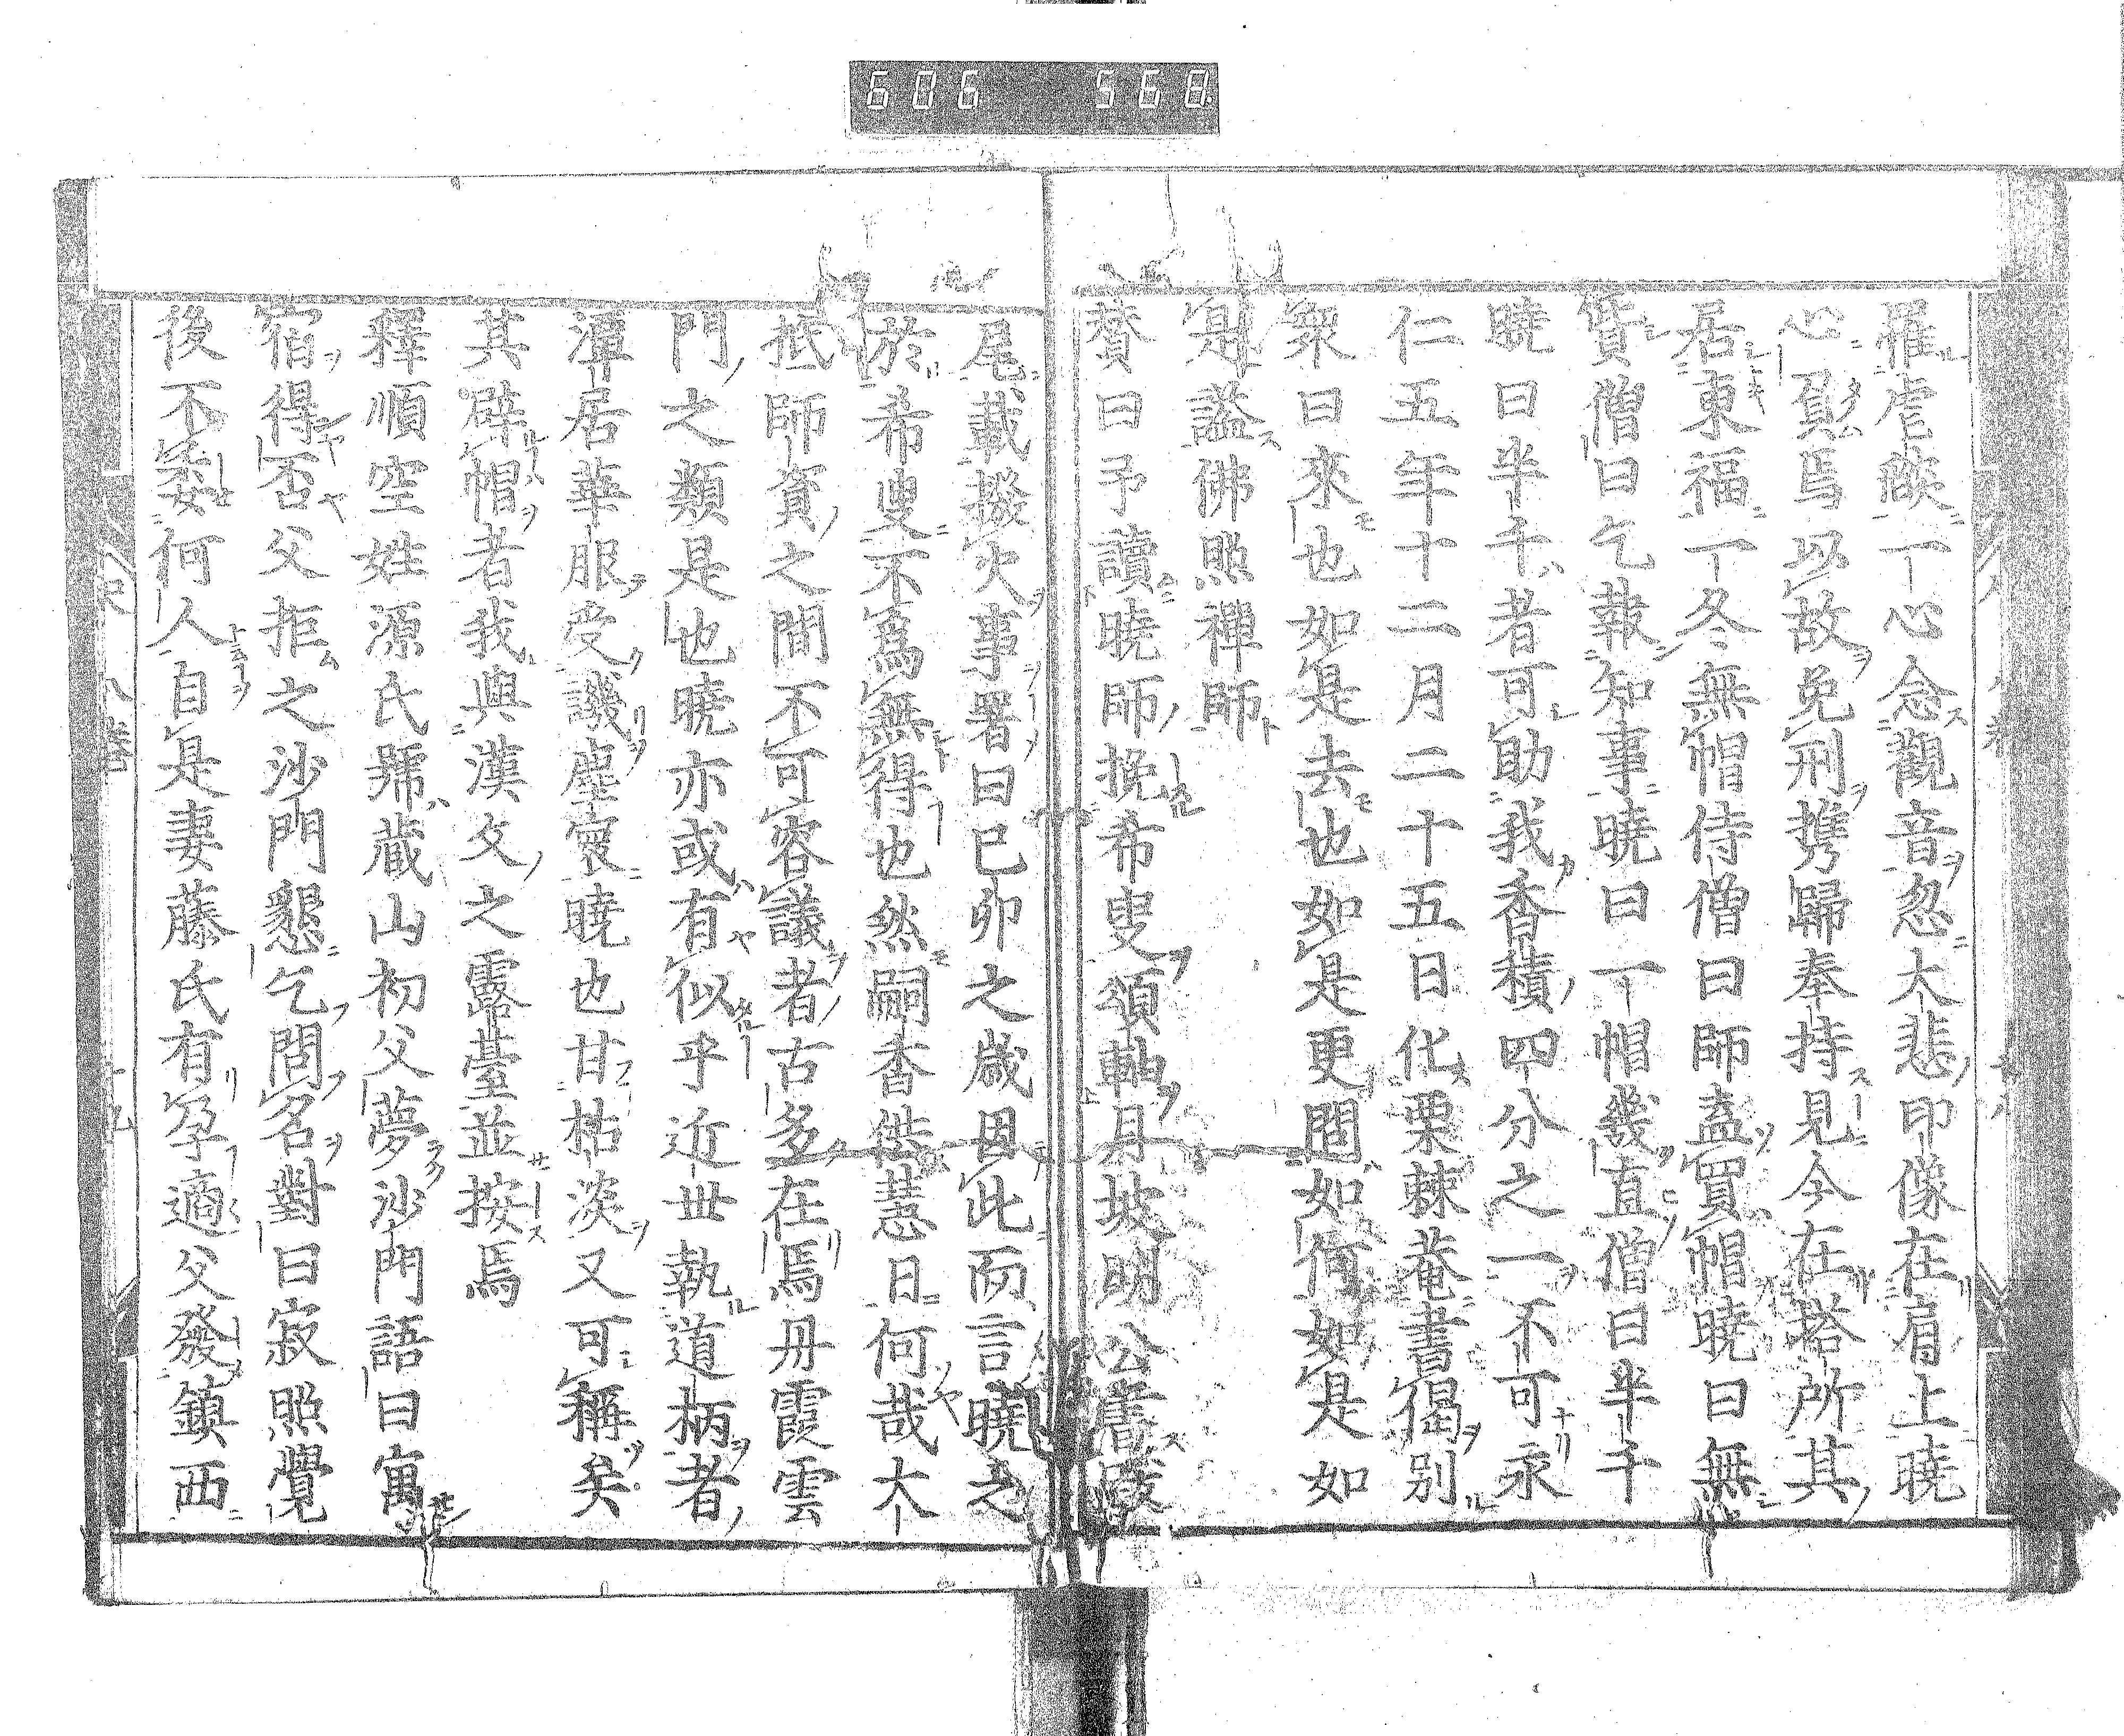 606 568
罹虐燄一心念觀音忽大悲印像在肩上曉
心負焉以故免刑携歸奉持見今在塔所其
居東福一冬無帽侍僧曰師盍買帽曉曰無
貲僧曰乞報知事曉曰一帽幾直僧曰半千
曉曰半千者可助我香積四分之一不可永
仁五年十二月二十五日化栗棘菴書偈別
衆曰來也如是去也如是更問如何如是如
是謚佛照禪師
賛曰予讀曉師挽希叟頌軸月坡明公書
尾載撥火事署曰已卯之歲因此而言曉之
於希叟不爲無得也然嗣香供慧日何哉大
抵師資之間不可容議者古多在焉丹霞雲
門之類是也曉亦或有似乎近世執道柄者
潭居華服受譏塵寰曉也甘枯淡又可稱矣
其辟帽者我與漢文之露臺並按焉
釋順空姓源氏號藏山初父夢沙門語曰寓
宿得否父拒之沙門懇乞問名對曰寂照覺
後不委何人自是妻藤氏有孕適父發鎮西